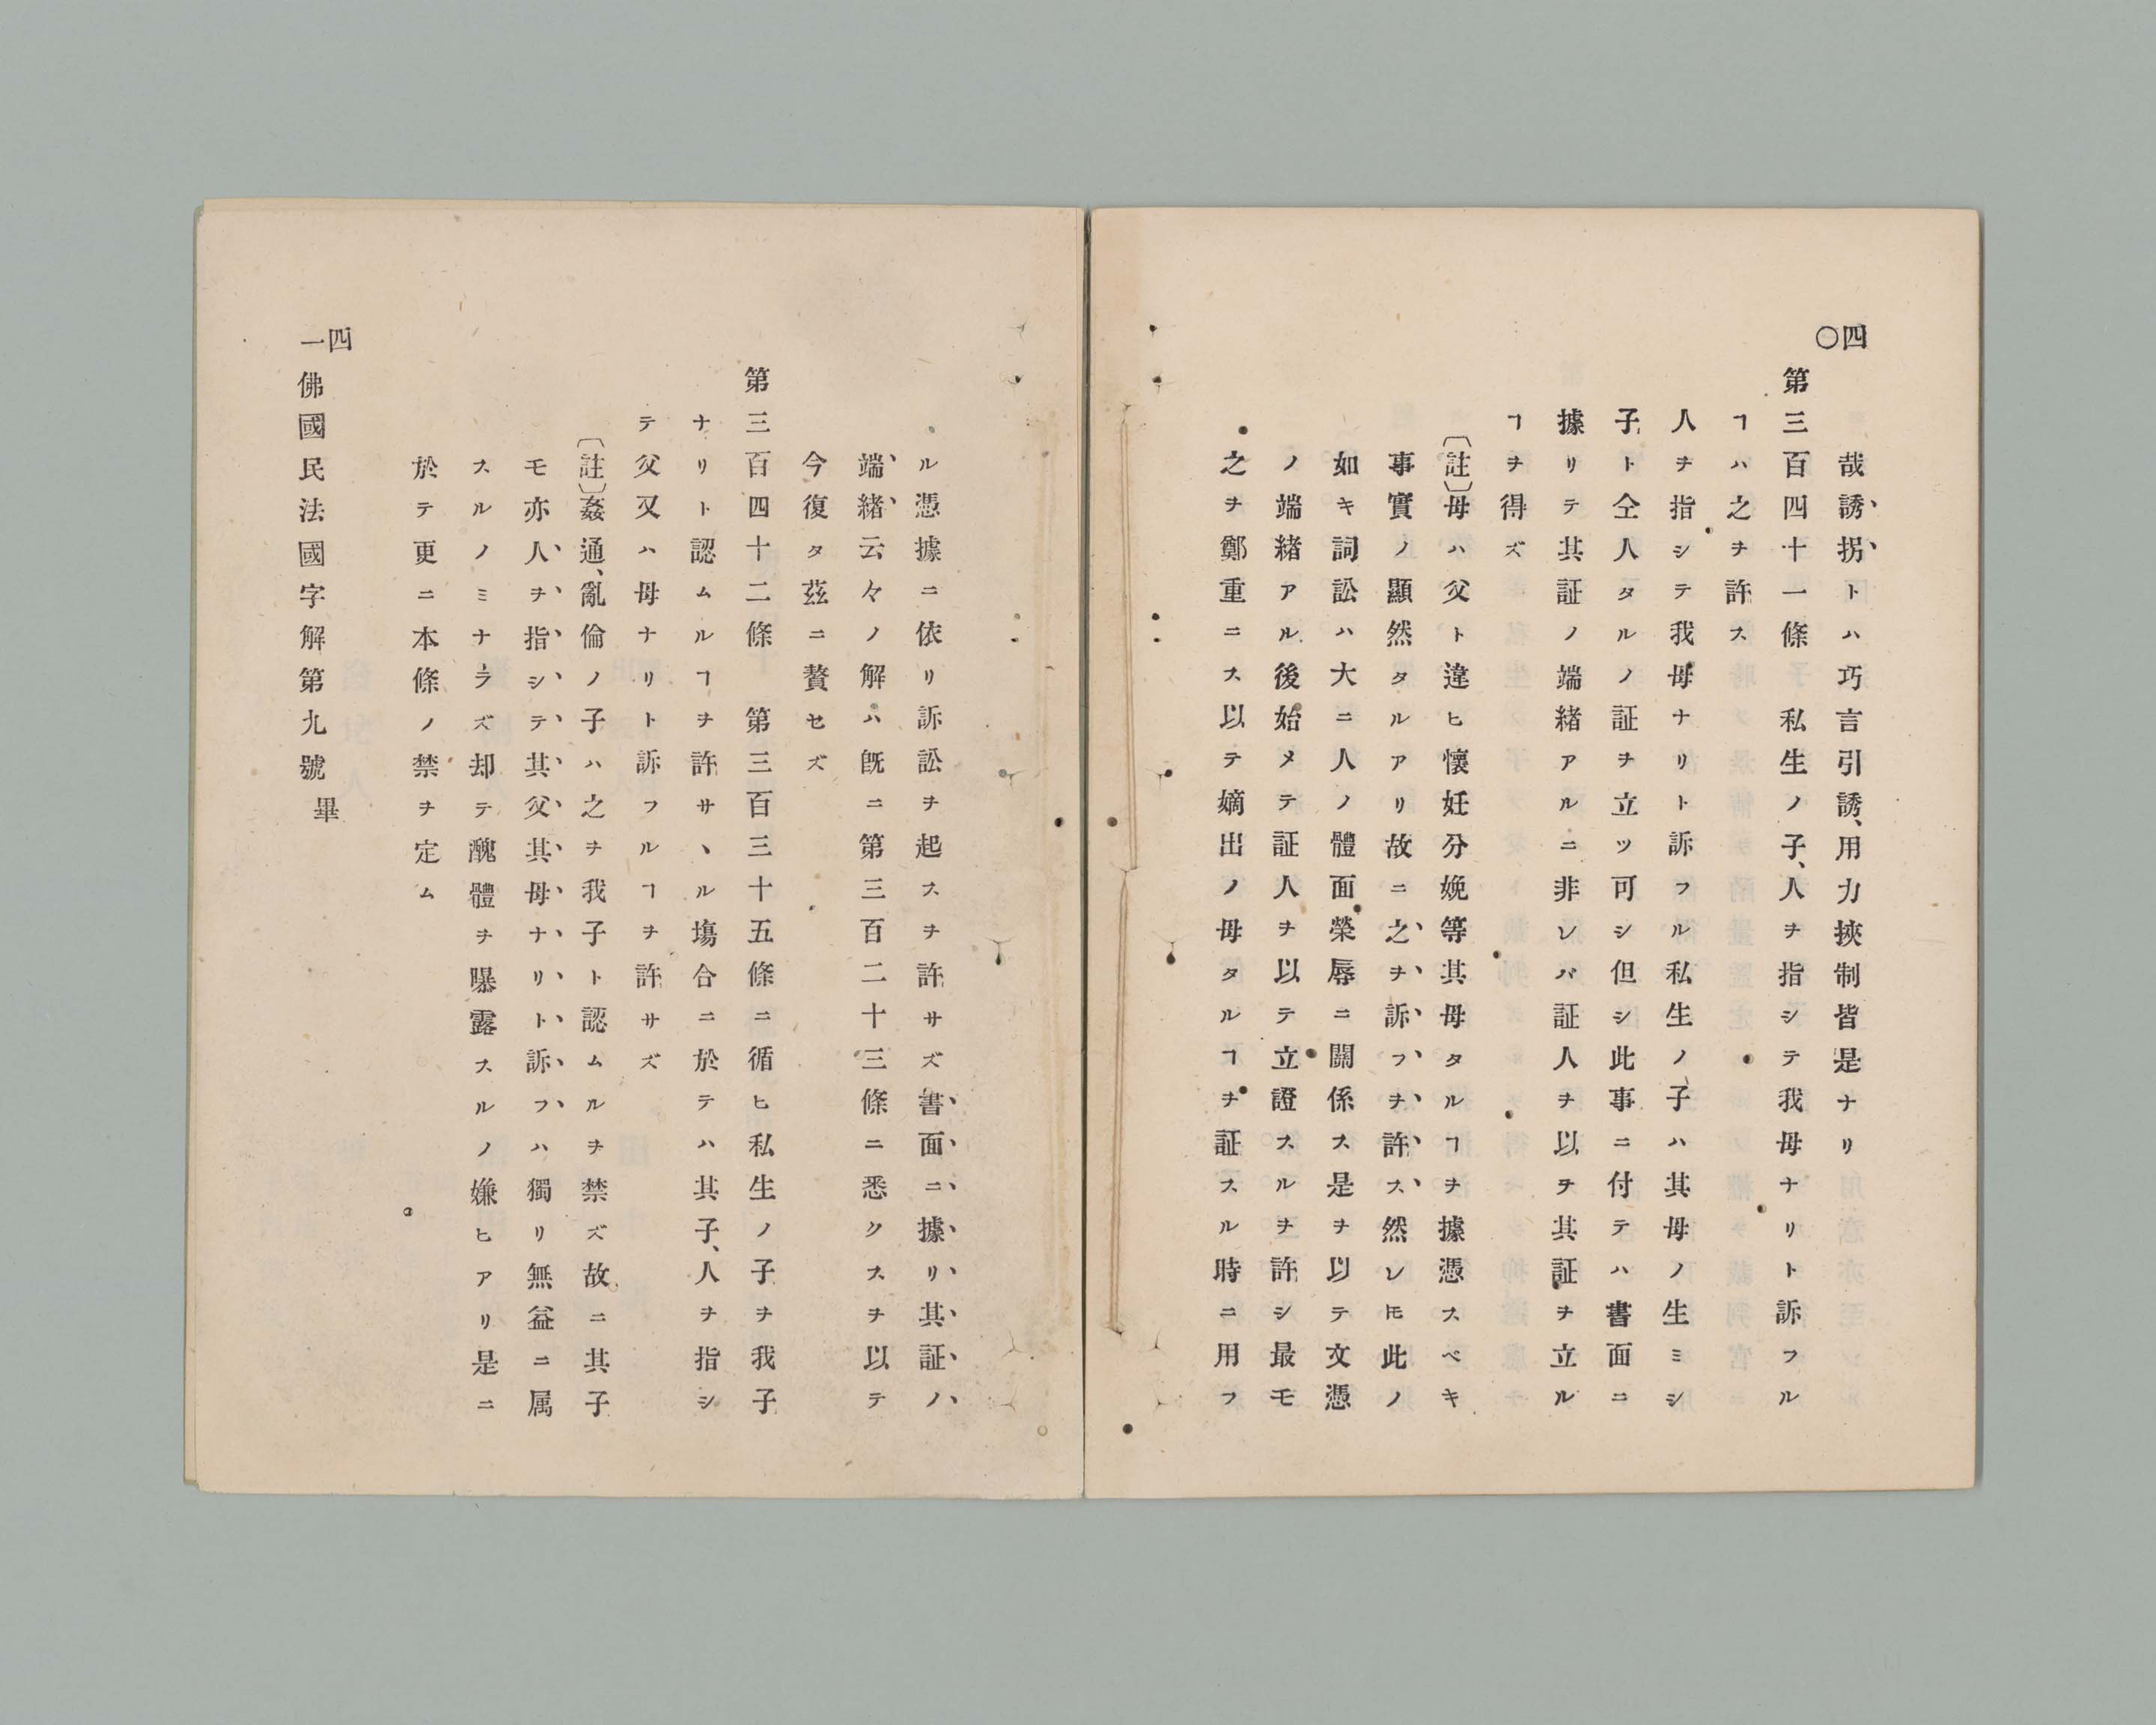 四〇
哉誘拐トハ巧言引誘、用力挾制皆是ナリ
第三百四十一條　私生ノ子、人ヲ指シテ我母ナリト訴フル
ヿハ之ヲ許ス
人ヲ指シテ我母ナリト訴フル私生ノ子ハ其母ノ生ミシ
子ト仝人タルノ証ヲ立ツ可シ但シ此事ニ付テハ書面ニ
據リテ其証ノ端緒アルニ非レバ証人ヲ以ヲ其証ヲ立ル
ヿヲ得ズ
〔註〕母ハ父ト違ヒ懷妊分娩等其母タルヿヲ據憑スベキ
事實ノ顯然タルアリ故ニ之ヲ訴フヲ許ス然レ𪜈此ノ
如キ詞訟ハ大ニ人ノ體面榮辱ニ關係ス是ヲ以テ文憑
ノ端緒アル後始メテ証人ヲ以テ立證スルヲ許シ最モ
之ヲ鄭重ニス以テ嫡出ノ母タルヿヲ証スル時ニ用フ
ル憑據ニ依リ訴訟ヲ起スヲ許サズ書面ニ據リ其証ノ
端緒云々ノ解ハ既ニ第三百二十三條ニ悉クスヲ以テ
今復タ茲ニ贅セズ
第三百四十二條　第三百三十五條ニ循ヒ私生ノ子ヲ我子
ナリト認ムルヿヲ許サヽル塲合ニ於テハ其子、人ヲ指シ
テ父又ハ母ナリト訴フルヿヲ許サズ
〔註〕姦通、亂倫ノ子ハ之ヲ我子ト認ムルヲ禁ズ故ニ其子
モ亦人ヲ指シテ其父其母ナリト訴フハ獨リ無益ニ属
スルノミナラズ却テ醜體ヲ曝露スルノ嫌ヒアリ是ニ
於テ更ニ本條ノ禁ヲ定ム
四一
佛國民法國字解第九號畢